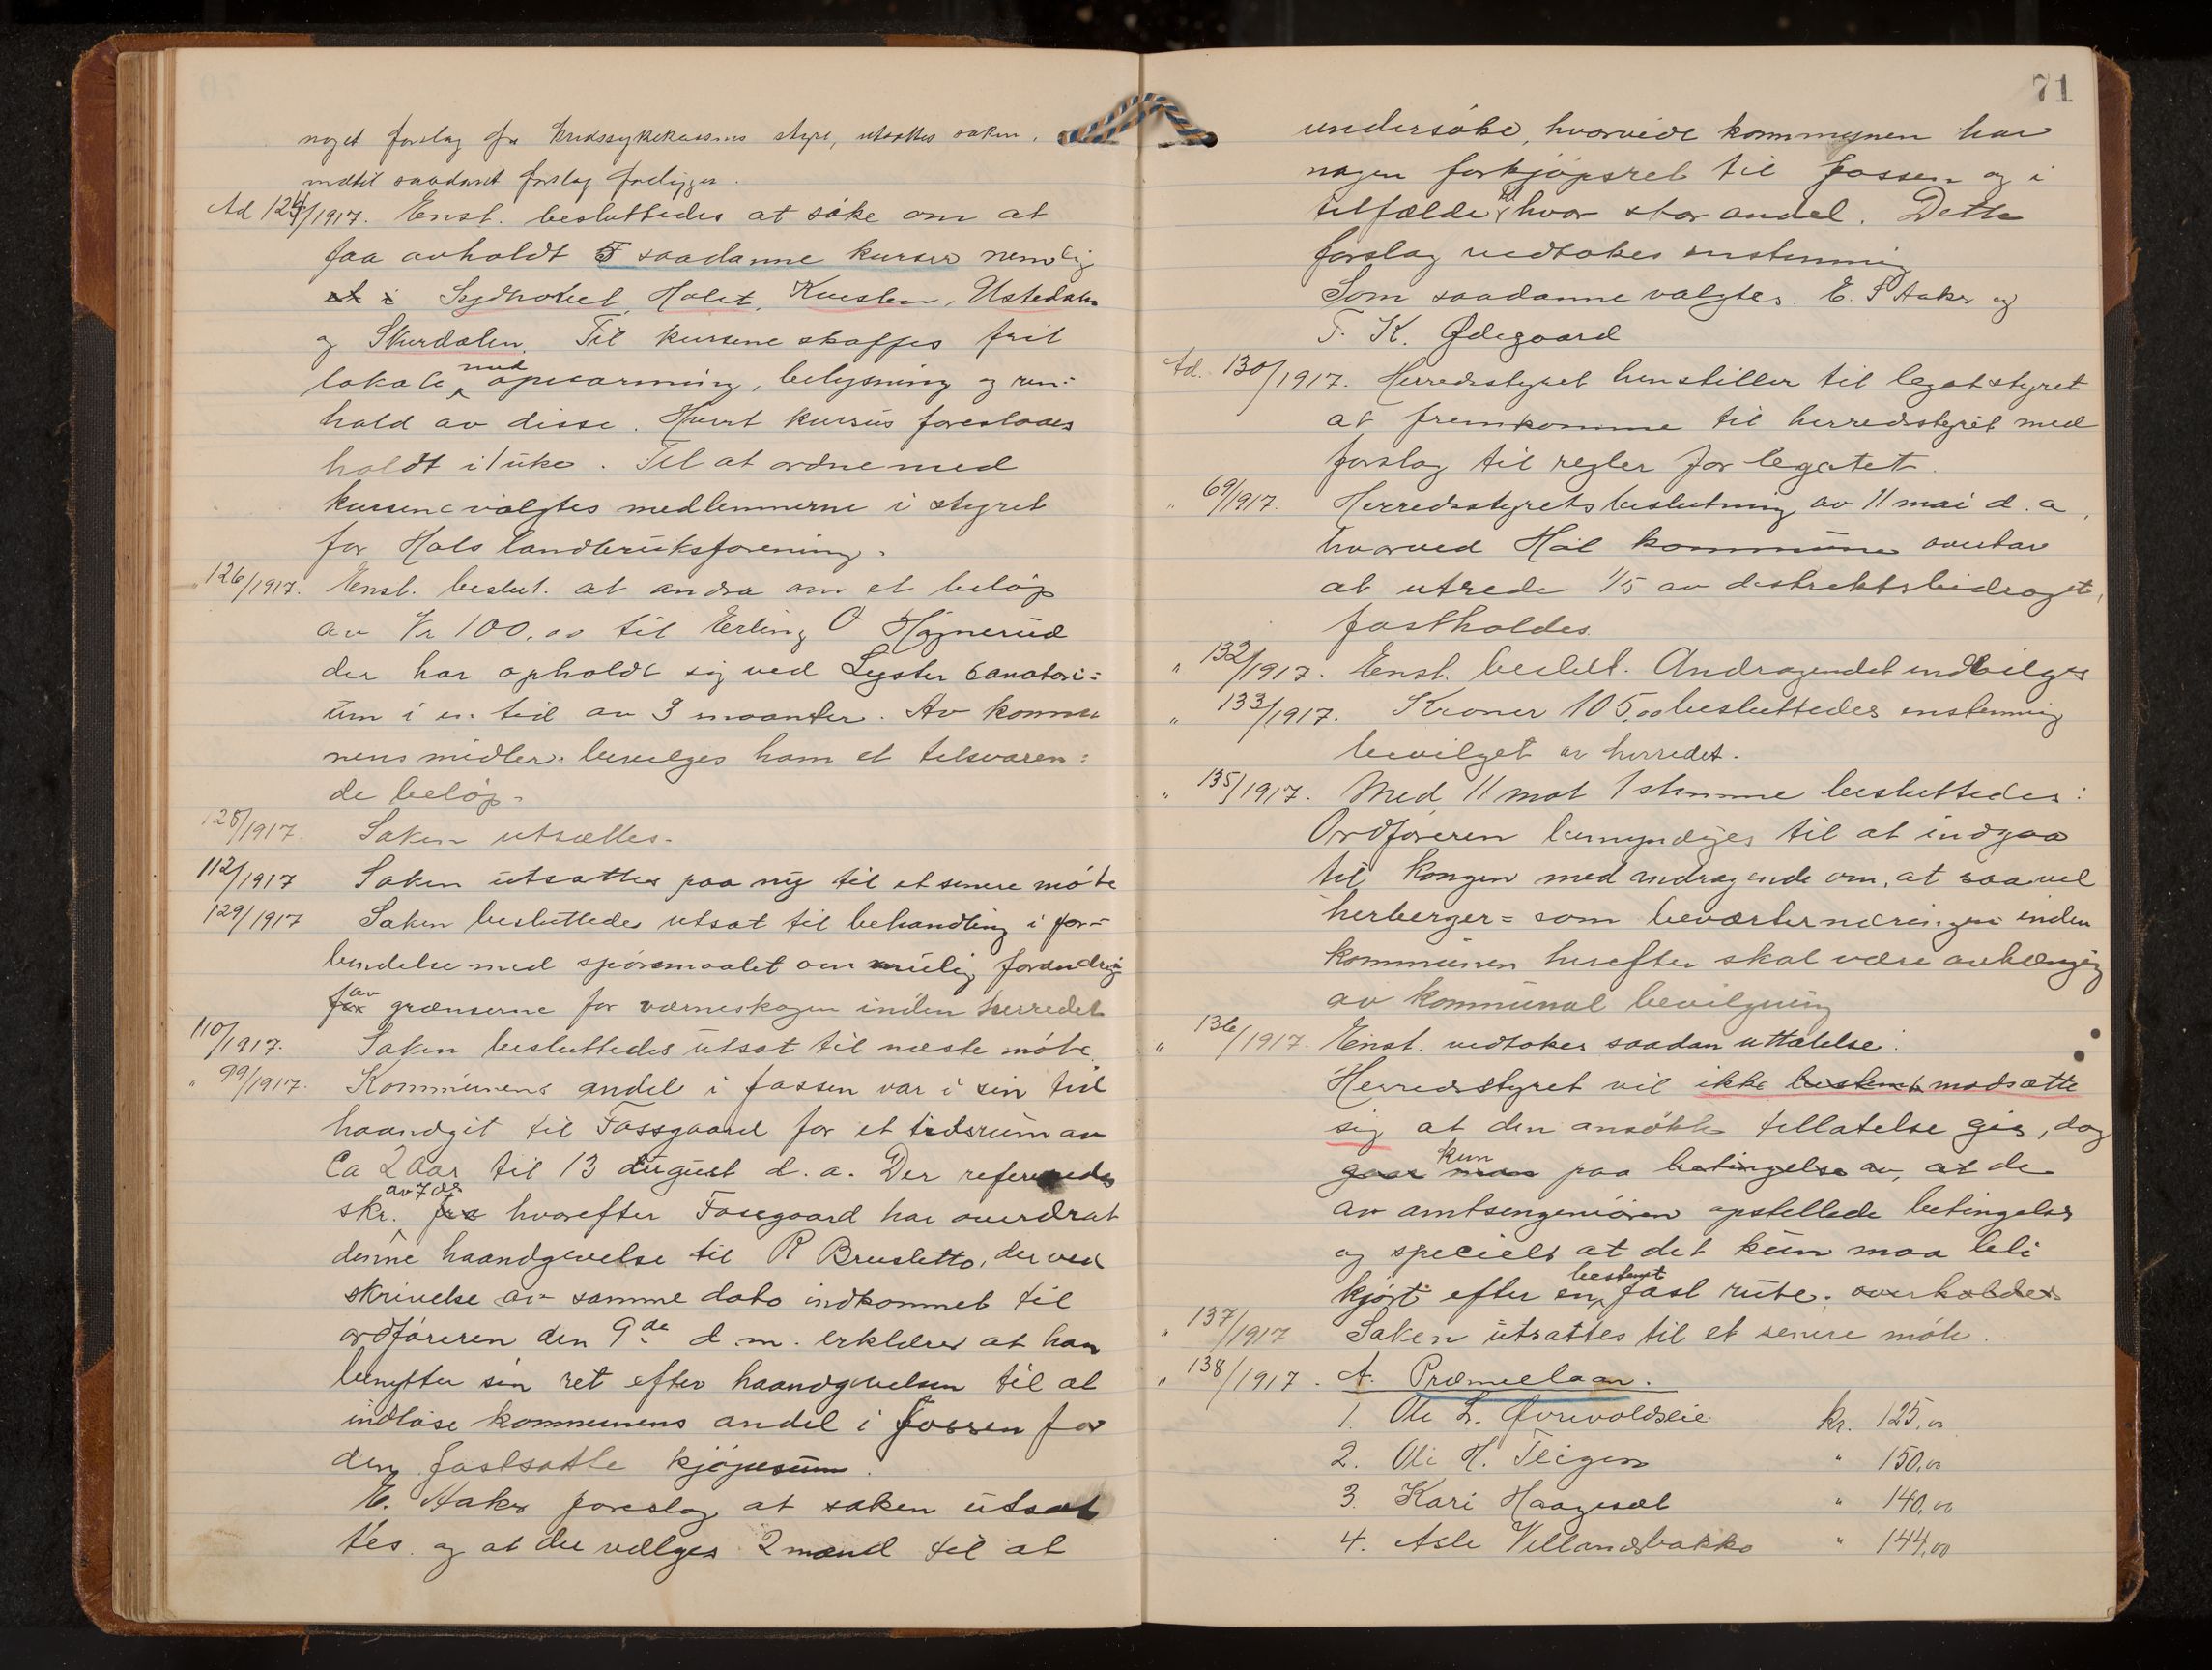 noget forslag fra kredssykekassens styre, utsattes saken,
indtil saadant forslag foreligger.
Ad 124/1917. Enst. besluttedes at söke om at
faa avholdt 5 saadanne kurser nemlig
et i Sydhovet, Holet, Kvislen, Ustedalen
og Skurdalen. Til kursene skaffes frit
lokale med opvarming, belysning og ren=
hold av disse. Hvert kursus foreslaaes
holdt i 1 uke. Til at ordne med
kursene valgtes medlemmerne i styret
for Hols landbruksforening.
" 126/1917. Enst. beslut. at andra om et belöp
av kr 100,00 til Erling O Høgnerud
der har opholdt sig ved Lyster sanatori=
um i en tid av 3 maaneder. Av kommu
nens midler bevilges ham et tilsvaren=
de belöp.
128/1917. Saken utsættes.
112/1917 Saken utsattes paa ny til et senere möte
129/1917 Saken besluttedes utsat til behandling i for=
bindelse med spörsmaalet om mulig forandring
for av grænserne for værneskogen inden herredet
110/1917. Saken besluttedes utsat til næste möte.
" 99/1917. Kommunens andel i fossen var i sin tid
haandgit til Fossgaard for et tidsrum av
Ca 2 aar til 13 august d. a. Der refereredes
skr. fra av 7 ds hvorefter Fossgaard har overdrat
denne haandgivelse til R Brusletto, der ved
skrivelse av samme dato indkommet til
ordföreren den 9de d.m. erklærer at han
benytter sin ret efter haandgivelsen til at
indlöse kommunens andel i fossen for
den fastsatte kjöpesum.
E. Aaker foreslog at saken utsat
tes og at der vælges 2 mænd til at
71
undersöke, hvorvidt kommunen har
nogen forkjöpsret til fossen og i
tilfælde til hvor stor andel. Dette
forslag vedtokes enstemmig
Som saadanne valgtes. E. S Aaker og
T. K. Ødegaard
Ad. 130/1917. Herredsstyret henstiller til legatstyret
at fremkomme til herredsstyret med
forslag til regler for legatet.
" 69/1917. Herredsstyrets beslutning av 11 mai d. a,
hvorved Hol kommune overtar
at utrede 1/5 av distriktsbidraget,
fastholdes.
" 132/1917. Enst. beslut. Andragendet indvilges
" 133/1917. Kroner 105,00 besluttedes enstemmig
bevilget av herredet.
" 135/1917. Med 11 mot 1 stemme besluttedes:
Ordföreren bemyndiges til at indgaa
til kongen med andragende om, at saavel
herberger= som beværternæringen inden
kommunen herefter skal være avhængig
av kommunal bevilgning
" 136/1917. Enst. vedtokes saadan uttalelse:
Herredsstyret vil ikke bestemt modsætte
sig at den ansökte tillatelse gis, dog
gaar man kun paa betingelse av, at de
av amtsingeniören opstillede betingelser
og specielt at det kun maa bli
kjört efter en bestemt fast rute. overholdes
" 137/1917 Saken utsattes til et senere möte.
" 138/1917. A. Præmielaan.
1. Ole L. Ørevoldseie kr. 125,00
2. Ole H. Teigen " 150,00
3. Kari Haagesæt " 140,00
4. Asle Villandsbakko " 144,00